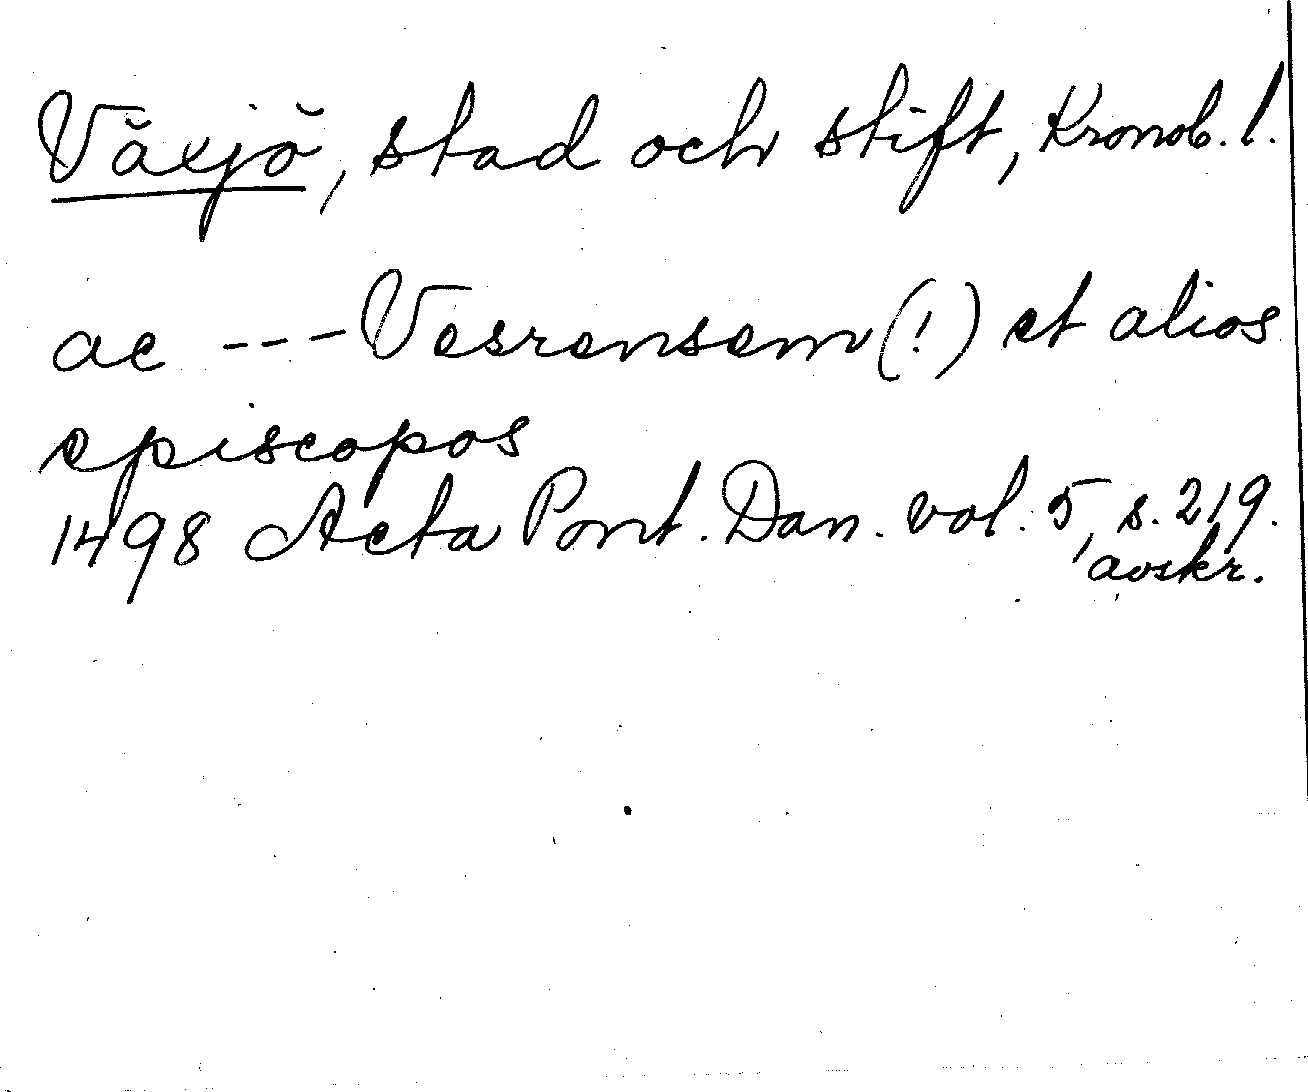 Växjö, stad och stift, Kronob. l.
ac --- Vesrensem (!) et alios
episcopos
1498 Acta Pont. Dan. vol. 5, s. 219.
avskr.